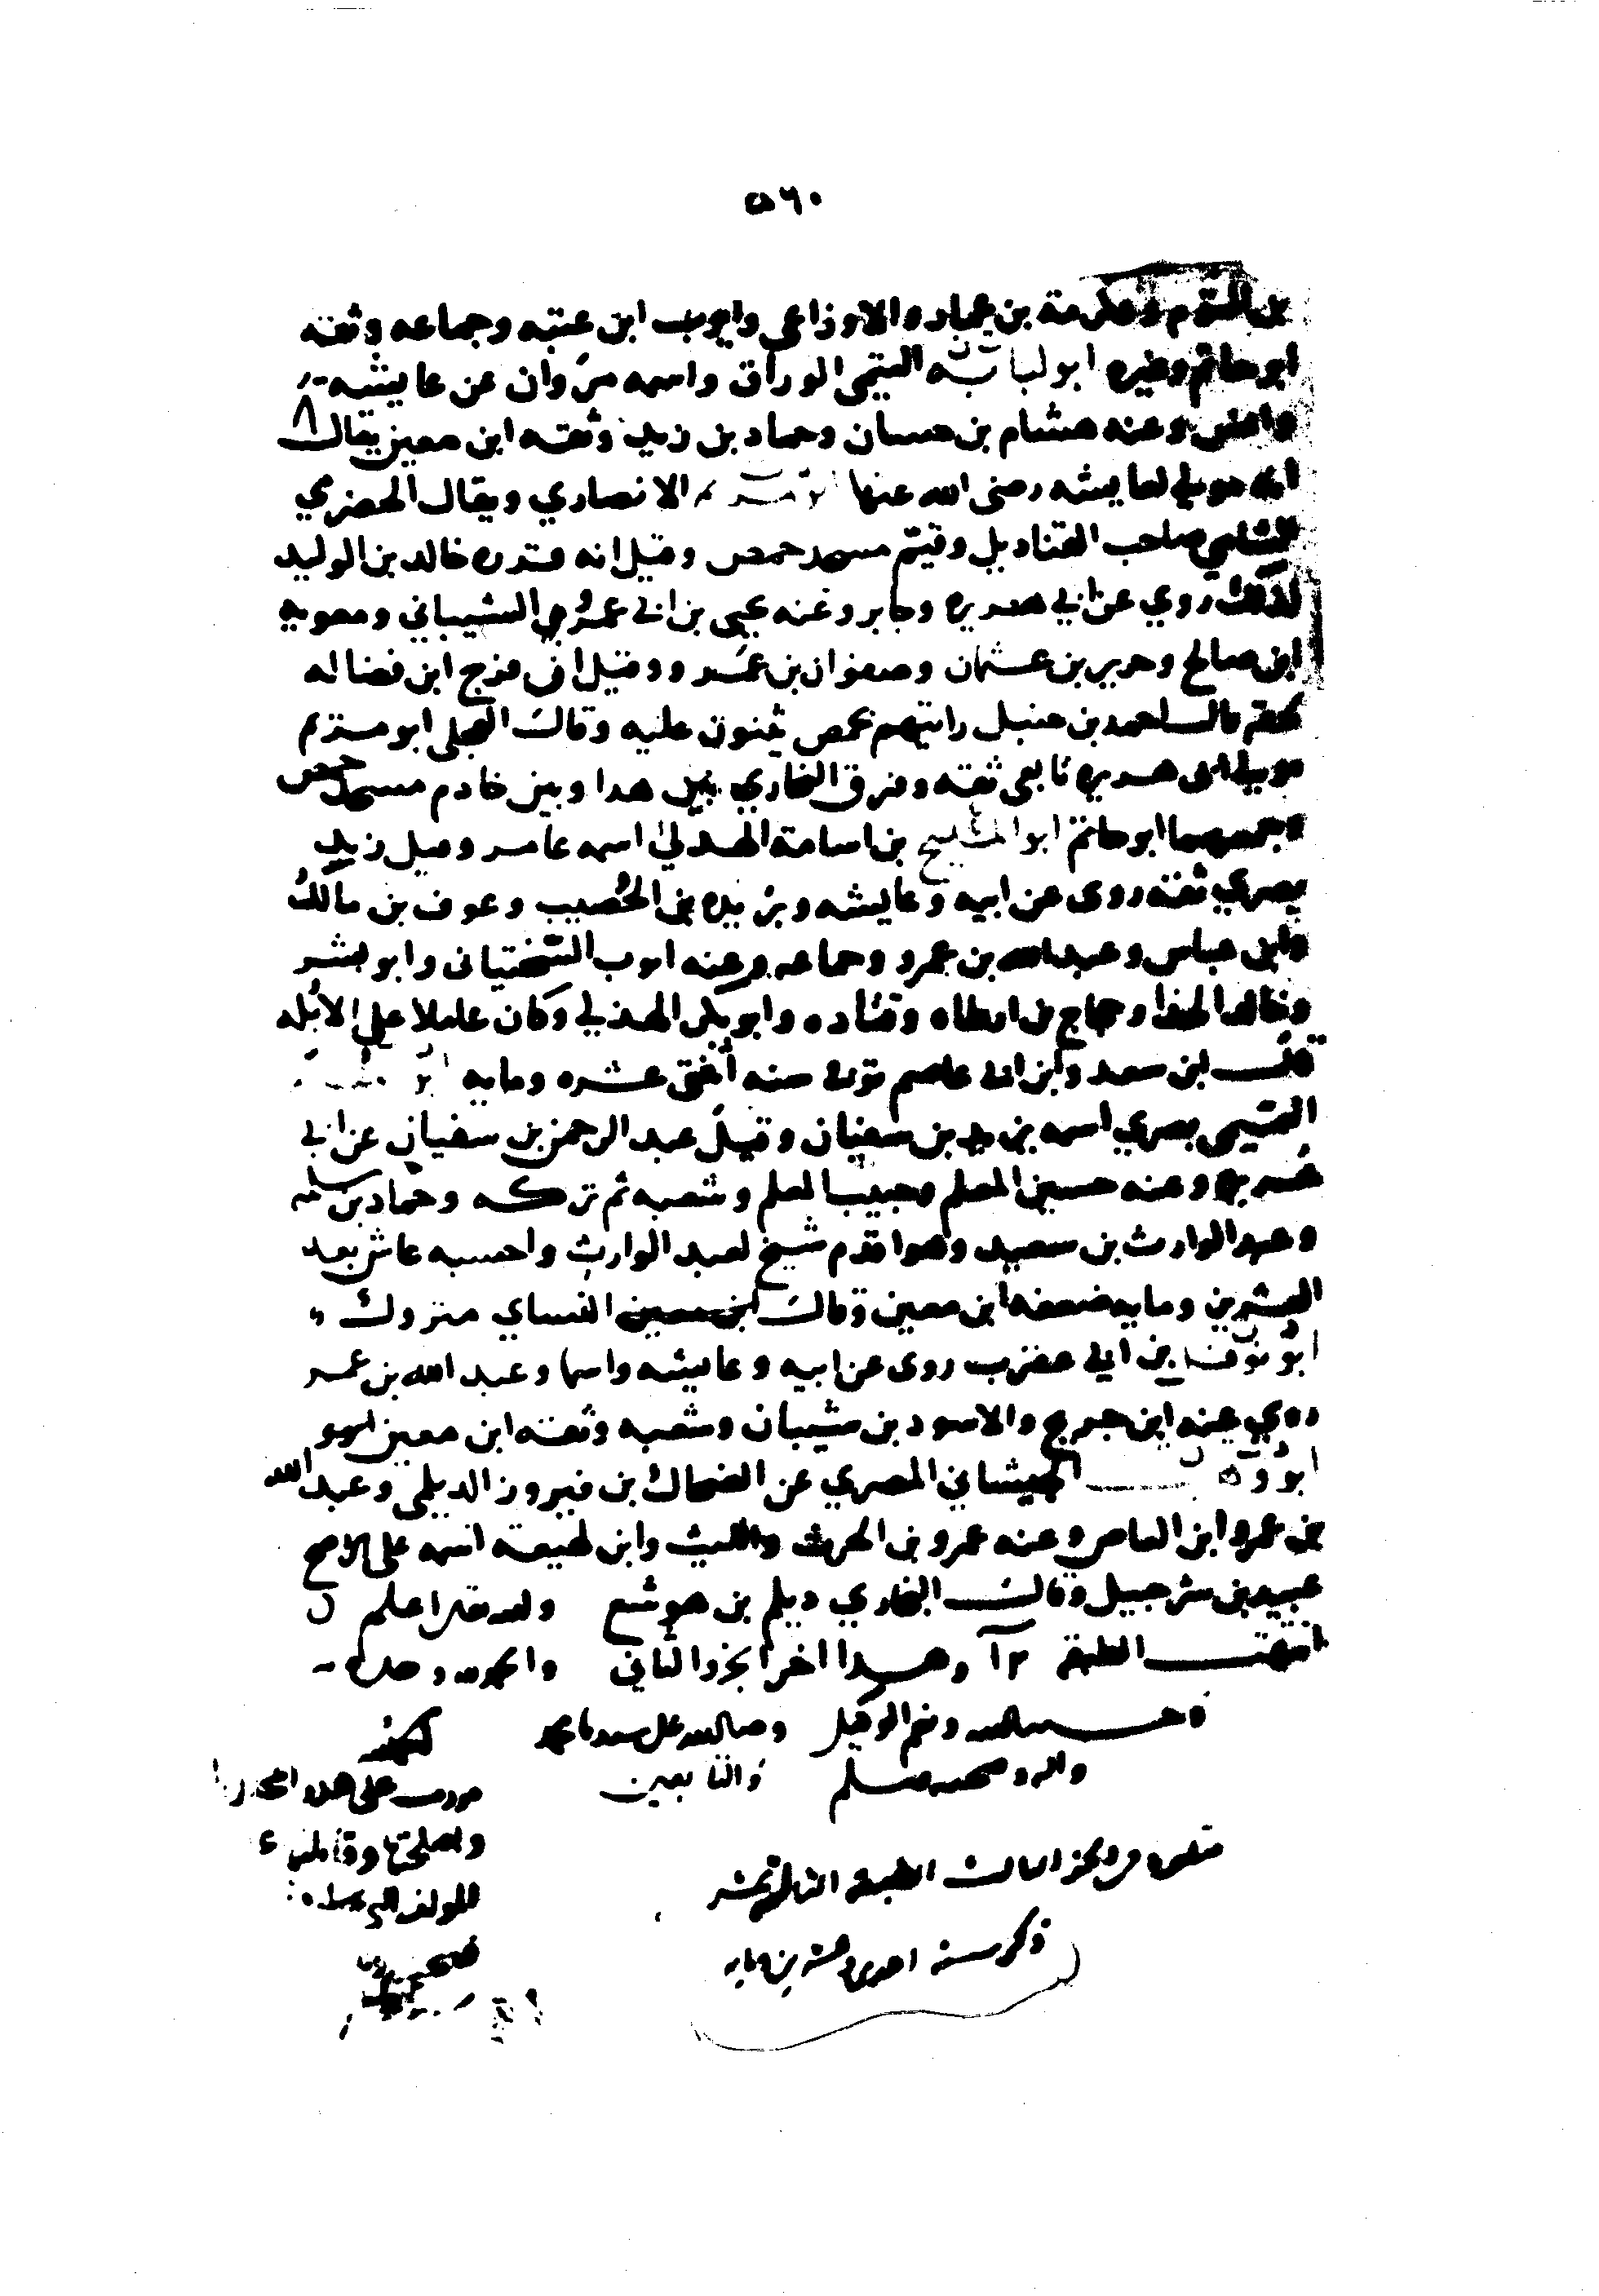 ٥٦٠
بن التوم وعكرمة بن عمار والاوزاعي وايوب ابن عتبه وجماعه وثقه
ابو حاتم وغيره ابو لبابه التيمي الوراق واسمه مروان عن عايشه
وانس وعنه هشام بن حسان وحماد بن زيد وثقه ابن معين يقال
انه مولي لعايشه رضى الله عنها ابو مريم الانصاري ويقال الحضري
الشامي صاحب القناديل وقيم مسجد حمص وقيل انه قدره خالد بن الوليد
لذلك روي عن ابي هريره وجابر وعنه يحيى بن ابى عمرو الشيباني ومعويه
ابن صالح وحرير بن عثمان وصفوان بن عمرو وقيل ان فرج ابن فضاله
لحقه قال احمد بن حنبل رايتهم بحمص يثنون عليه وقال العجلى ابو مريم
مولي ابى هريره تابعى ثقه وفرق البخاري بين هدا وبين خادم مسجد حمص
وجمعهما ابو حاتم ابو المليح بن اسامة الهدلي اسمه عامر وقيل زيد
بصري ثقه روى عن ابيه وعايشه وبريده بن الحُصيب وعوف بن مالك
وابن عباس وعبد الله بن عمرو وجماعه وعنه ايوب السختياني وابو بشر
وخالد الحذا وحجاج بن ارطاه وقتاده وابو بكر الهذلي وكان عاملا على الابله
قال ابن سعد وابن ابى عاصم توفى سنه اثنتى عشره ومايه ابو المهزم
التميمى بصري اسمه يزيد بن سفيان وقيل عبد الرحمن بن سفيان عن ابي
هريره وعنه حسين المعلم وحبيب المعلم وشعبه ثم تركه وحماد بن سلمه
وعبد الوارث بن سعيد وهو اقدم شيخ لعبد الوارث واحسبه عاش بعد
العشرين ومايه ضعفه ابن معين وقال ابن معين النساي متروك
ابو نوفل بن ابى عقرب روى عن ابيه وعايشه واسما وعبد الله بن عمر
روي عنه ابن جريج والاسود بن شيبان وشعبه وثقه ابن معين
ابو وهب الجيشاني المصري عن الضحاك بن فيروز الديلمى وعبد الله
بن عمرو ابن العاص وعنه عمرو بن الحرث والليث وابن لهيعة اسمه على الاصح
عبيد بن شرحبيل وقال البخاري ديلم بن هوشع والله تعلى اعلم
انتهت الطبقه ١٢ وهدا اخر الجزو الثاني والحمد لله وحده
وحسبنا الله ونعم الوكيل وصلى الله على سيدنا محمد
واله وصحبه وسلم والتابعين
يتلوه في الجز الثالث الطبقه الثالثه عشر
ذكر سنة احدى وعشرين ومايه